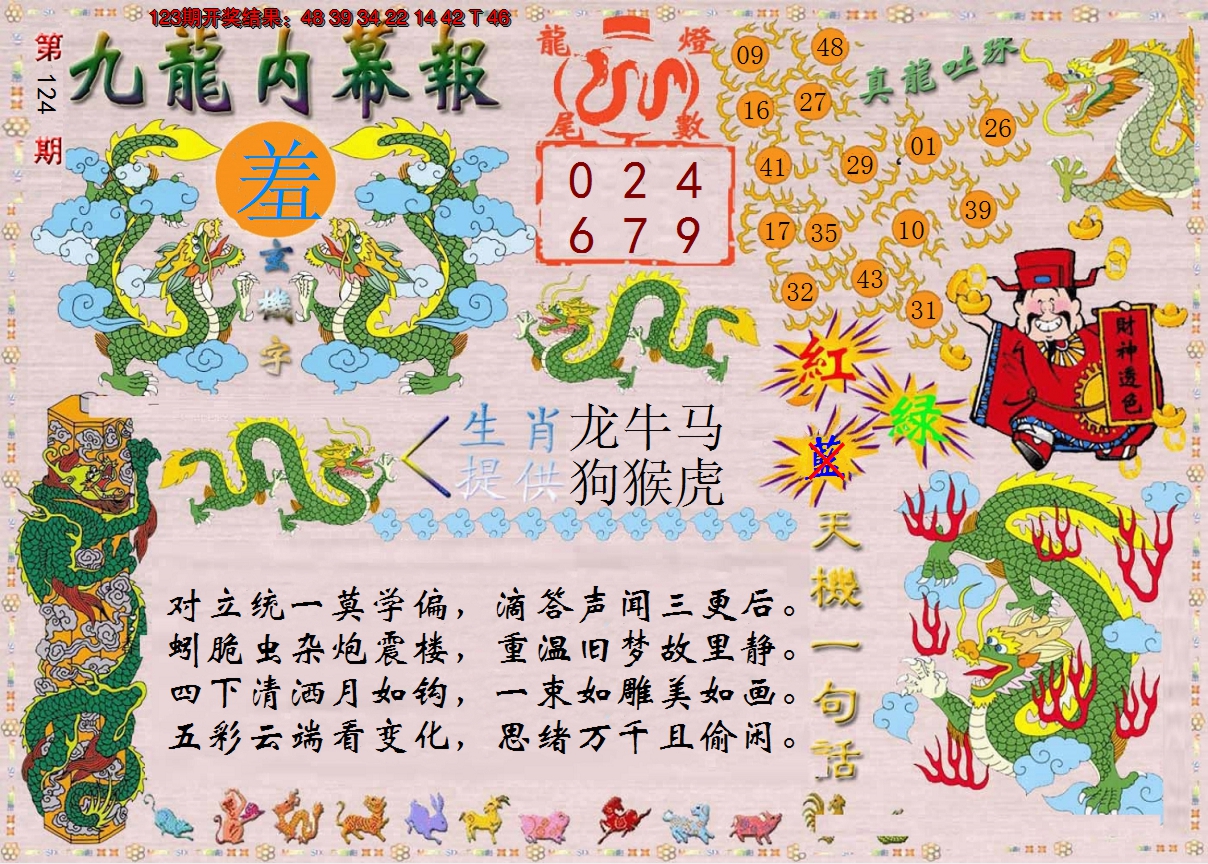 123期开奖结果：48 39 34 22 14 42 T 46
第124期
九龍内幕報
羞
玄機字
龍燈
尾數
0 2 4
6 7 9
真龍吐珠
09
48
16
27
01
26
41
29
39
17
35
10
43
32
31
紅
綠
藍
財神透色
生肖
提供
龙牛马
狗猴虎
天機一句話
对立统一莫学偏，滴答声闻三更后。
蚓脆虫杂炮震楼，重温旧梦故里静。
四下清洒月如钩，一束如雕美如画。
五彩云端看变化，思绪万千且偷闲。